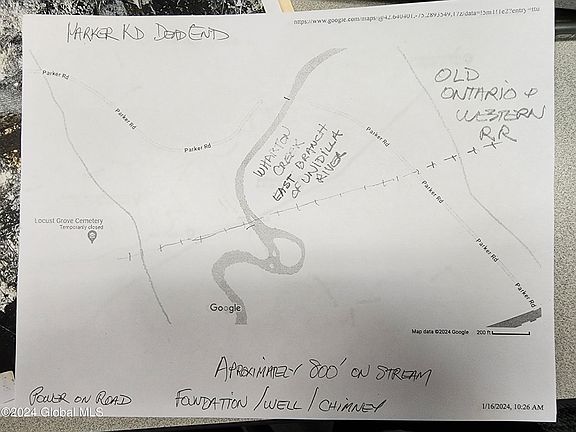 https://www.google.com/maps/@42.640401,-75.2893549,17z/data=!5m1!1e2?entry=ttu
MARKER RD DEAD END
OLD
ONTARIO &
WESTERN
R.R
Parker Rd
Parker Rd
Parker Rd
Parker Rd
WHARTON
CREEK
EAST BRANCH
OF UNIDILLA
RIVER
Parker Rd
Locust Grove Cemetery
Temporarily closed
Parker Rd
Parker Rd
Google
Map data ©2024 Google
200 ft
APROXIMATELY 800' ON STREAM
POWER ON ROAD
FOUNDATION / WELL / CHIMNEY
1/16/2024, 10:26 AM
© 2024 Global MLS